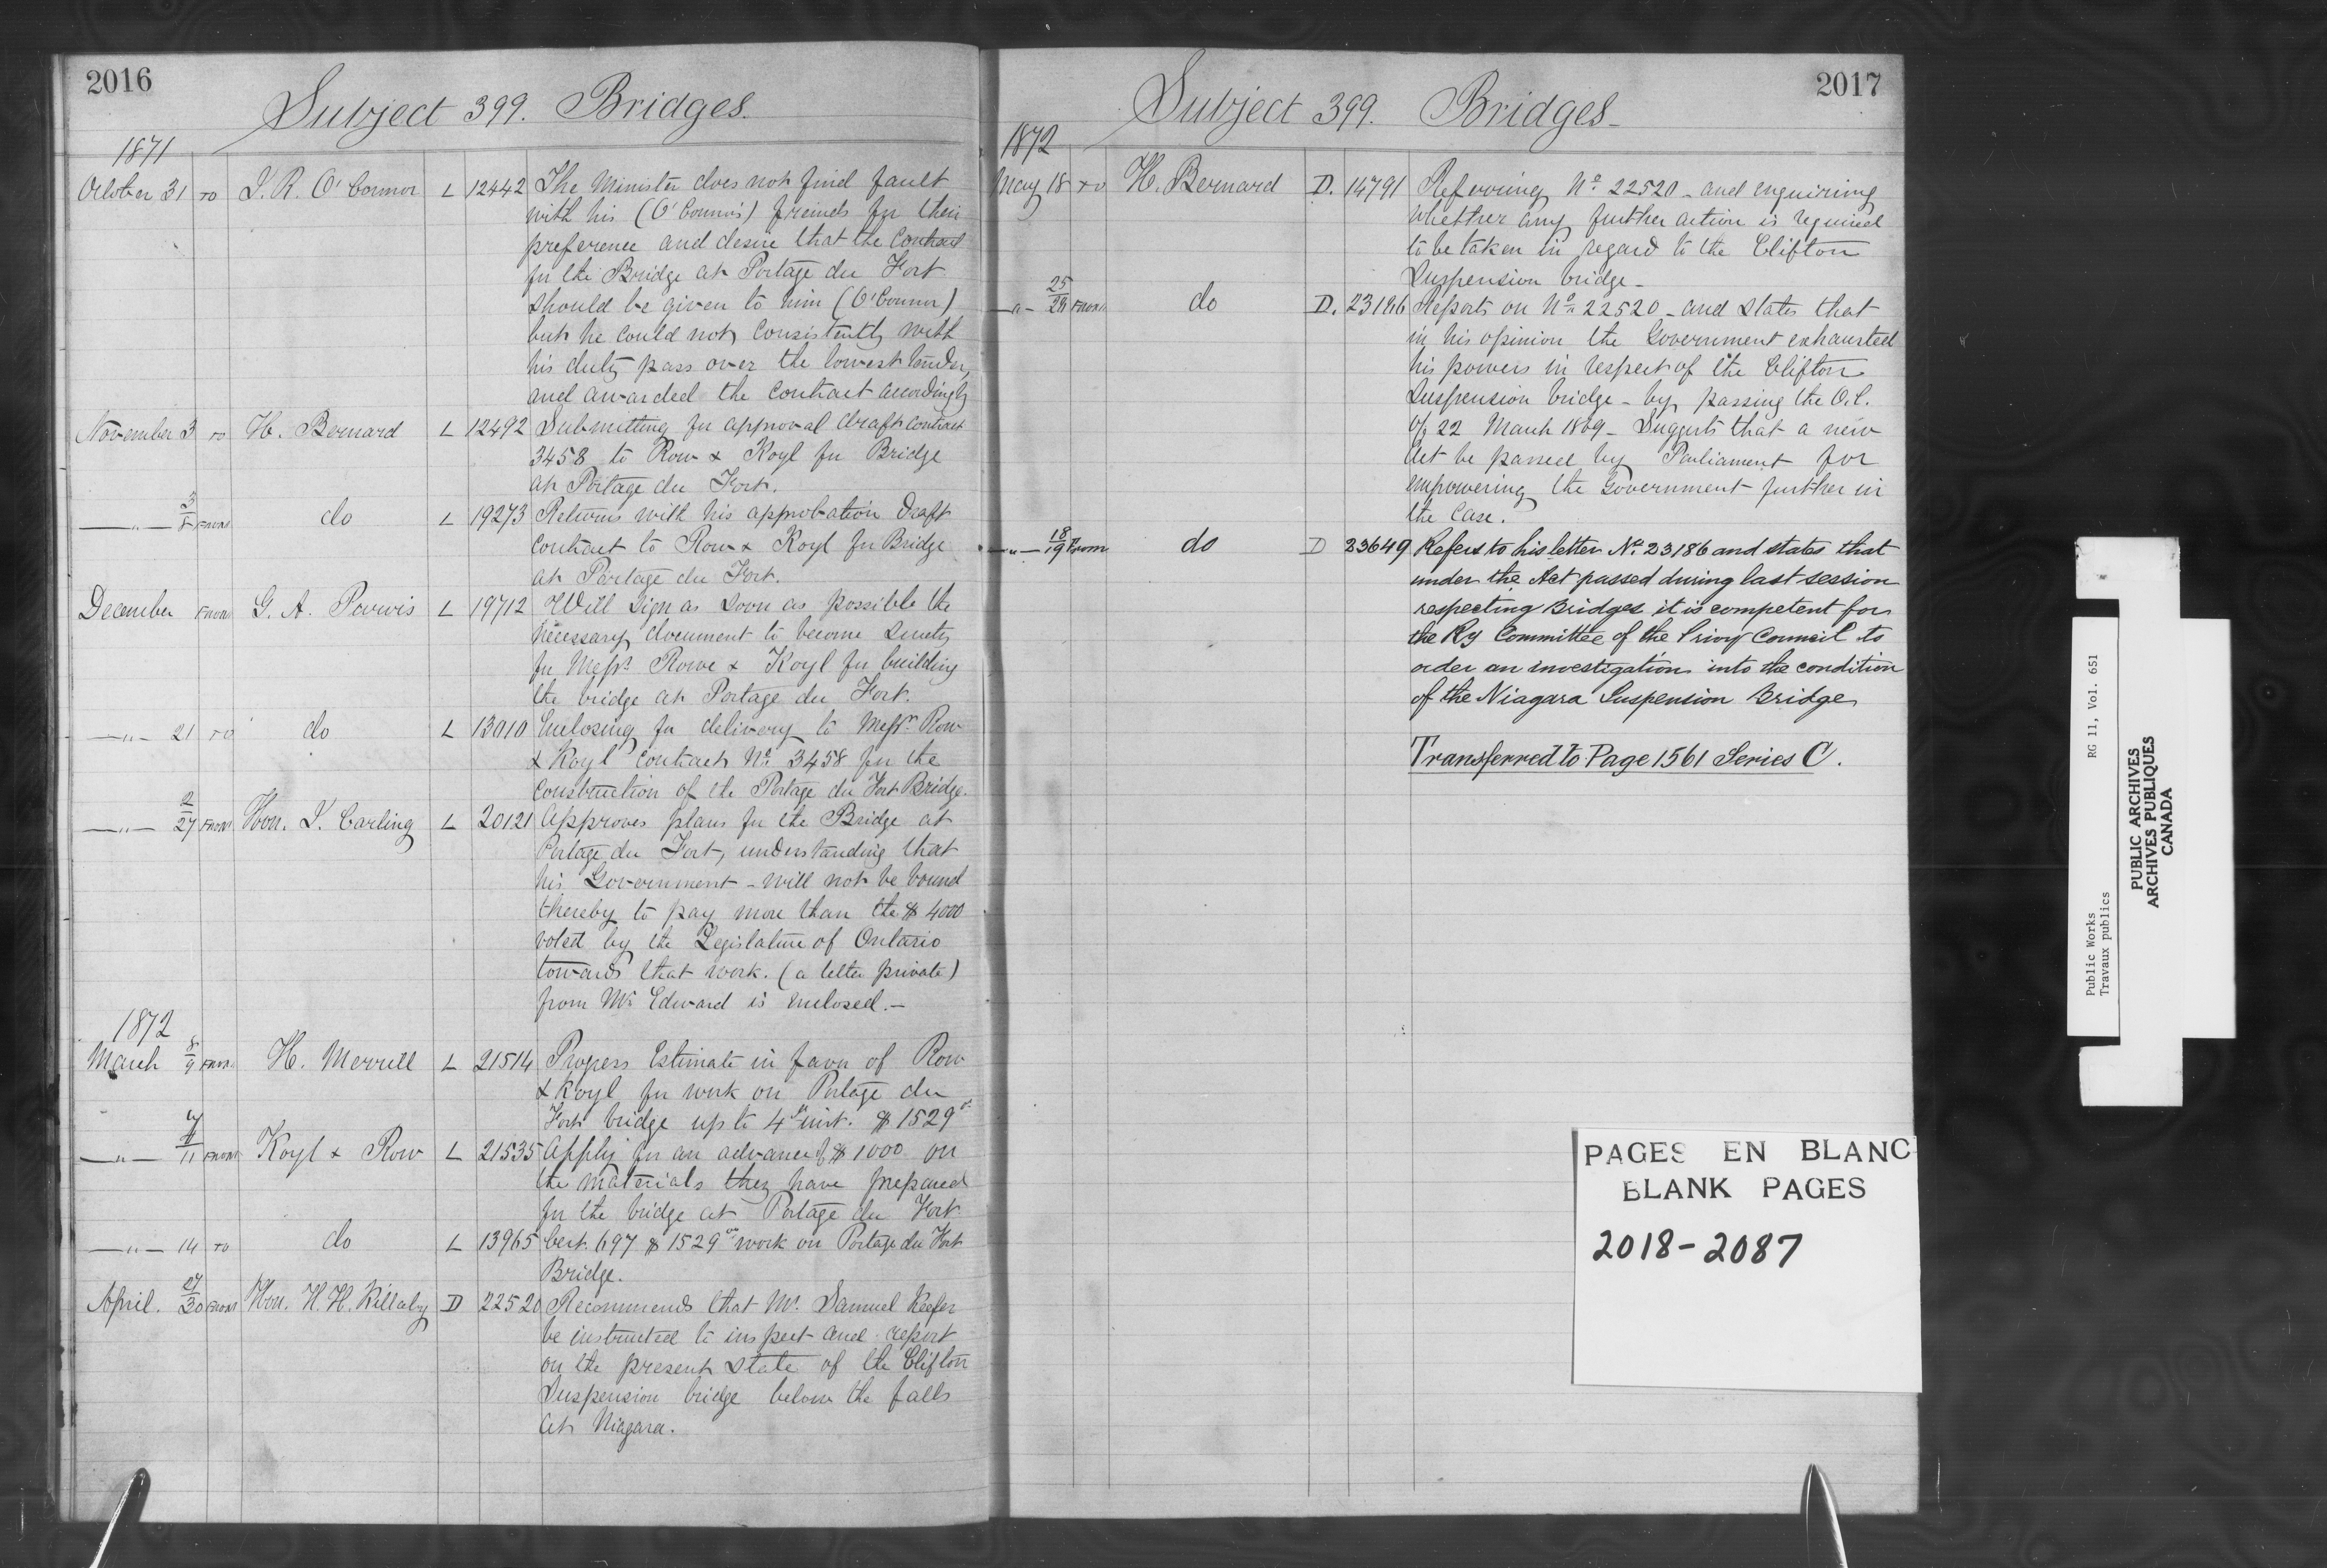 2016
Subject 399. Bridges.
1871
October 31 To J. R. O'Connor L 12442 The Minister does not find fault
with his (O'Connor's) freinds for their
preference and desire that the contract
for the Bridge at Portage du Fort
should be given to him (O'Connor)
but he could not consistently with
his duty pass over the lowest tender,
and awarded the contract accordingly
November 3 To H. Bernard L 12492 Submitting for approval draft contract
3458 to Row & Koyl for Bridge
at Portage du Fort.
—"— 3/8 From do L 19273 Returns with his approbation Draft
contract to Row & Koyl for Bridge
at Portage du Fort.
December From G. A. Purvis L 19712 Will sign as soon as possible the
necessary document to become surety
for Messrs. Rowe & Koyl for building
the bridge at Portage du Fort.
—"— 21 To do L 13010 Enclosing for delivery to Messrs. Row
& Koyl contract No. 3458 for the
construction of the Portage du Fort Bridge.
—"— 2/27 From Hon. J. Carling L 20121 Approves plans for the Bridge at
Portage du Fort, understanding that
his Government - will not be bound
thereby to pay more than the $ 4000
voted by the Legislature of Ontario
towards that work. (a letter private)
from Mr. Edward is enclosed.—
1872
March 8/9 From H. Merrill L 21514 Progess Estimate in favor of Row
& Koyl for work on Portage du
Fort bridge up to 4th inst. $ 1529
—"— 11 From Koyl & Row L 21535 Apply for an advance of $ 1000 on
the materials they have prepared
for the bridge at Portage du Fort
—"— 14 To do L 13965 Cert. 697 $ 1529 work on Portage du Fort
Bridge.
April. 27/30 From Hon. H. H. Killaly D 22520 Recommends that Mr. Samuel Keefer
be instructed to inspect and report
on the present state of the Clifton
Suspension bridge below the falls
at Niagara.
2017
Subject 399. Bridges-
1872
May 18 To H. Bernard D. 14791 Referring No. 22520 - and enquiring
whether any further action is required
to be taken in regard to the Clifton
Suspension bridge-
—"— 25/28 From do D. 23186 Reports on No. 22520 - and states that
in his opinion the Government exhausted
his powers in respect of the Clifton
Suspension bridge - by passing the O.C.
of 22 March 1869 - Suggests that a new
Act be passed by Parliament for
empowering the Government further in
the case.
—"— 18/19 From do D 23649 Refers to his letter No. 23186 and states that
under the Act passed during last session
respecting Bridges it is competent for
the Ry Committee of the Privy Council to
order an investigation into the condition
of the Niagara Suspension Bridge
Transferred to Page 1561 Series C.
PAGES EN BLANC
BLANK PAGES
2018-2087
Public Works RG 11, Vol. 651
Travaux publics
PUBLIC ARCHIVES
ARCHIVES PUBLIQUES
CANADA